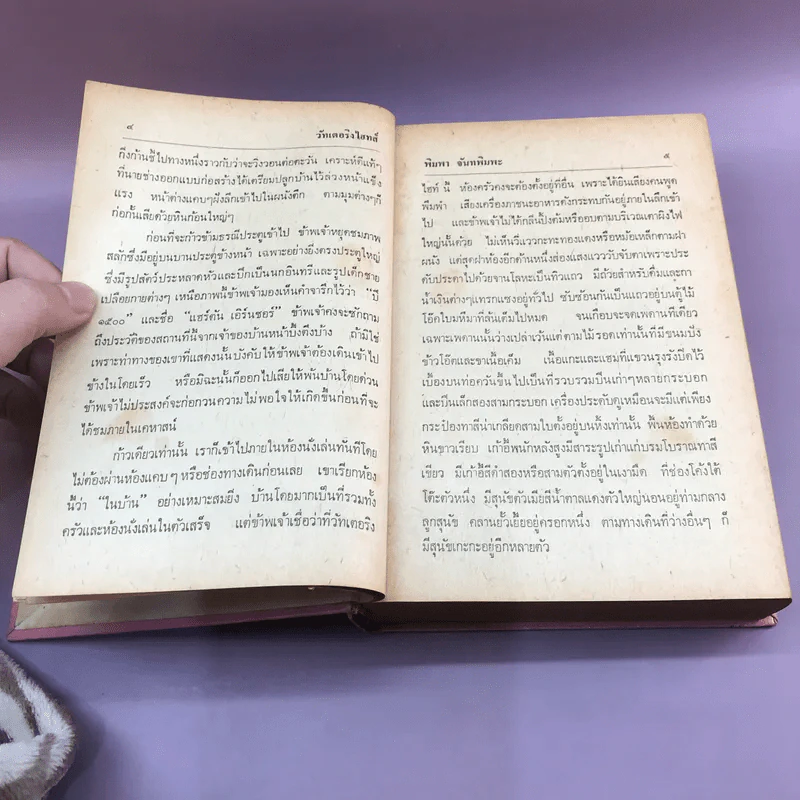 ๔
วัทเตอริงไฮทส์
กิ่งก้านชี้ไปทางหนึ่งราวกับว่าจะวิงวอนต่อตะวัน เคราะห์ดีแท้ๆ
ที่นายช่างออกแบบก่อสร้างได้เตรียมปลูกบ้านไว้ล่วงหน้าแข็ง
แรง หน้าต่างแคบๆฝังลึกเข้าไปในผนังตึก ตามมุมต่างๆก็
ก่อกั้นเสียด้วยหินก้อนใหญ่ๆ
ก่อนที่จะก้าวข้ามธรณีประตูเข้าไป ข้าพเจ้าหยุดชมภาพ
สลักซึ่งมีอยู่บนบานประตูข้างหน้า เฉพาะอย่างยิ่งตรงประตูใหญ่
ซึ่งมีรูปสัตว์ประหลาดหัวและปีกเป็นนกอินทรีและรูปเด็กชาย
เปลือยกายต่างๆ เหนือภาพนี้ข้าพเจ้ามองเห็นคำจารึกไว้ว่า “ปี
๑๕๐๐” และชื่อ “แฮร์ตัน เอิร์นชอร์” ข้าพเจ้าคงจะซักถาม
ถึงประวัติของสถานที่นี้จากเจ้าของบ้านหน้าบึ้งตึงบ้าง ถ้ามิใช่
เพราะท่าทางของเขาที่แสดงนั้นบังคับให้ข้าพเจ้าต้องเดินเข้าไป
ข้างในโดยเร็ว หรือมิฉะนั้นก็ออกไปเสียให้พ้นบ้านโดยด่วน
ข้าพเจ้าไม่ประสงค์จะก่อกวนความไม่พอใจให้เกิดขึ้นก่อนที่จะ
ได้ชมภายในเคหาสน์
ก้าวเดียวเท่านั้น เราก็เข้าไปภายในห้องนั่งเล่นทันทีโดย
ไม่ต้องผ่านห้องแคบๆหรือช่องทางเดินก่อนเลย เขาเรียกห้อง
นี้ว่า “ในบ้าน” อย่างเหมาะสมยิ่ง บ้านโดยมากเป็นที่รวมทั้ง
ครัวและห้องนั่งเล่นในตัวเสร็จ แต่ข้าพเจ้าเชื่อว่าที่วัทเตอริง
พิมพา จันทพิมพะ
๕
ไฮท์ นี้ ห้องครัวคงจะต้องตั้งอยู่ที่อื่น เพราะได้ยินเสียงคนพูด
พึมพำ เสียงเครื่องภาชนะอาหารดังกระทบกันอยู่ภายในลึกเข้า
ไป และข้าพเจ้าไม่ได้กลิ่นปิ้งต้มหรืออบตามบริเวณเตาผิงไฟ
ใหญ่นั้นด้วย ไม่เห็นวี่แววกะทะทองแดงหรือหม้อเหล็กตามฝา
ผนัง แต่สุดฝาห้องอีกด้านหนึ่งส่องแสงแวววับจับตาเพราะประ
ดับประดาไปด้วยจานโลหะเป็นทิวแถว มีถ้วยสำหรับดื่มและกา
น้ำเงินต่างๆแทรกแซงอยู่ทั่วไป ซับซ้อนกันเป็นแถวอยู่บนตู้ไม้
โอ๊คใบมหึมาที่ล้นเต็มไปหมด จนเกือบจะจดเพดานทีเดียว
เฉพาะเพดานนั้นว่างเปล่าเว้นแต่ตามไม้รอดเท่านั้นที่มีขนมปัง
ข้าวโอ๊ตและขาเนื้อเค็ม เนื้อแกะและแฮมที่แขวนรุงรังปิดไว้
เบื้องบนท่อควันขึ้นไปเป็นที่รวบรวมปืนเก่าๆหลายกระบอก
และปืนเล็กสองสามกระบอก เครื่องประดับดูเหมือนจะมีแต่เพียง
กระป๋องทาสีน่าเกลียดสามใบตั้งอยู่บนหิ้งเท่านั้น พื้นห้องทำด้วย
หินขาวเรียบ เก้าอี้พนักหลังสูงมีสาระรูปเก่าแก่บรมโบราณทาสี
เขียว มีเก้าอี้สีดำสองหรือสามตัวตั้งอยู่ในเงามืด ที่ช่องโค้งใต้
โต๊ะตัวหนึ่ง มีสุนัขตัวเมียสีน้ำตาลแดงตัวใหญ่นอนอยู่ท่ามกลาง
ลูกสุนัข คลานยั้วเยี้ยอยู่ครอกหนึ่ง ตามทางเดินที่ว่างอื่นๆ ก็
มีสุนัขเกะกะอยู่อีกหลายตัว